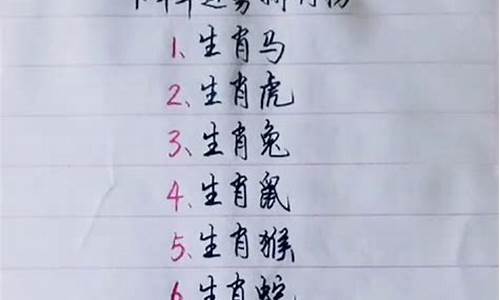 1、生肖马
2、生肖虎
3、生肖兔
4、生肖鼠
5、生肖猴
6、生肖蛇